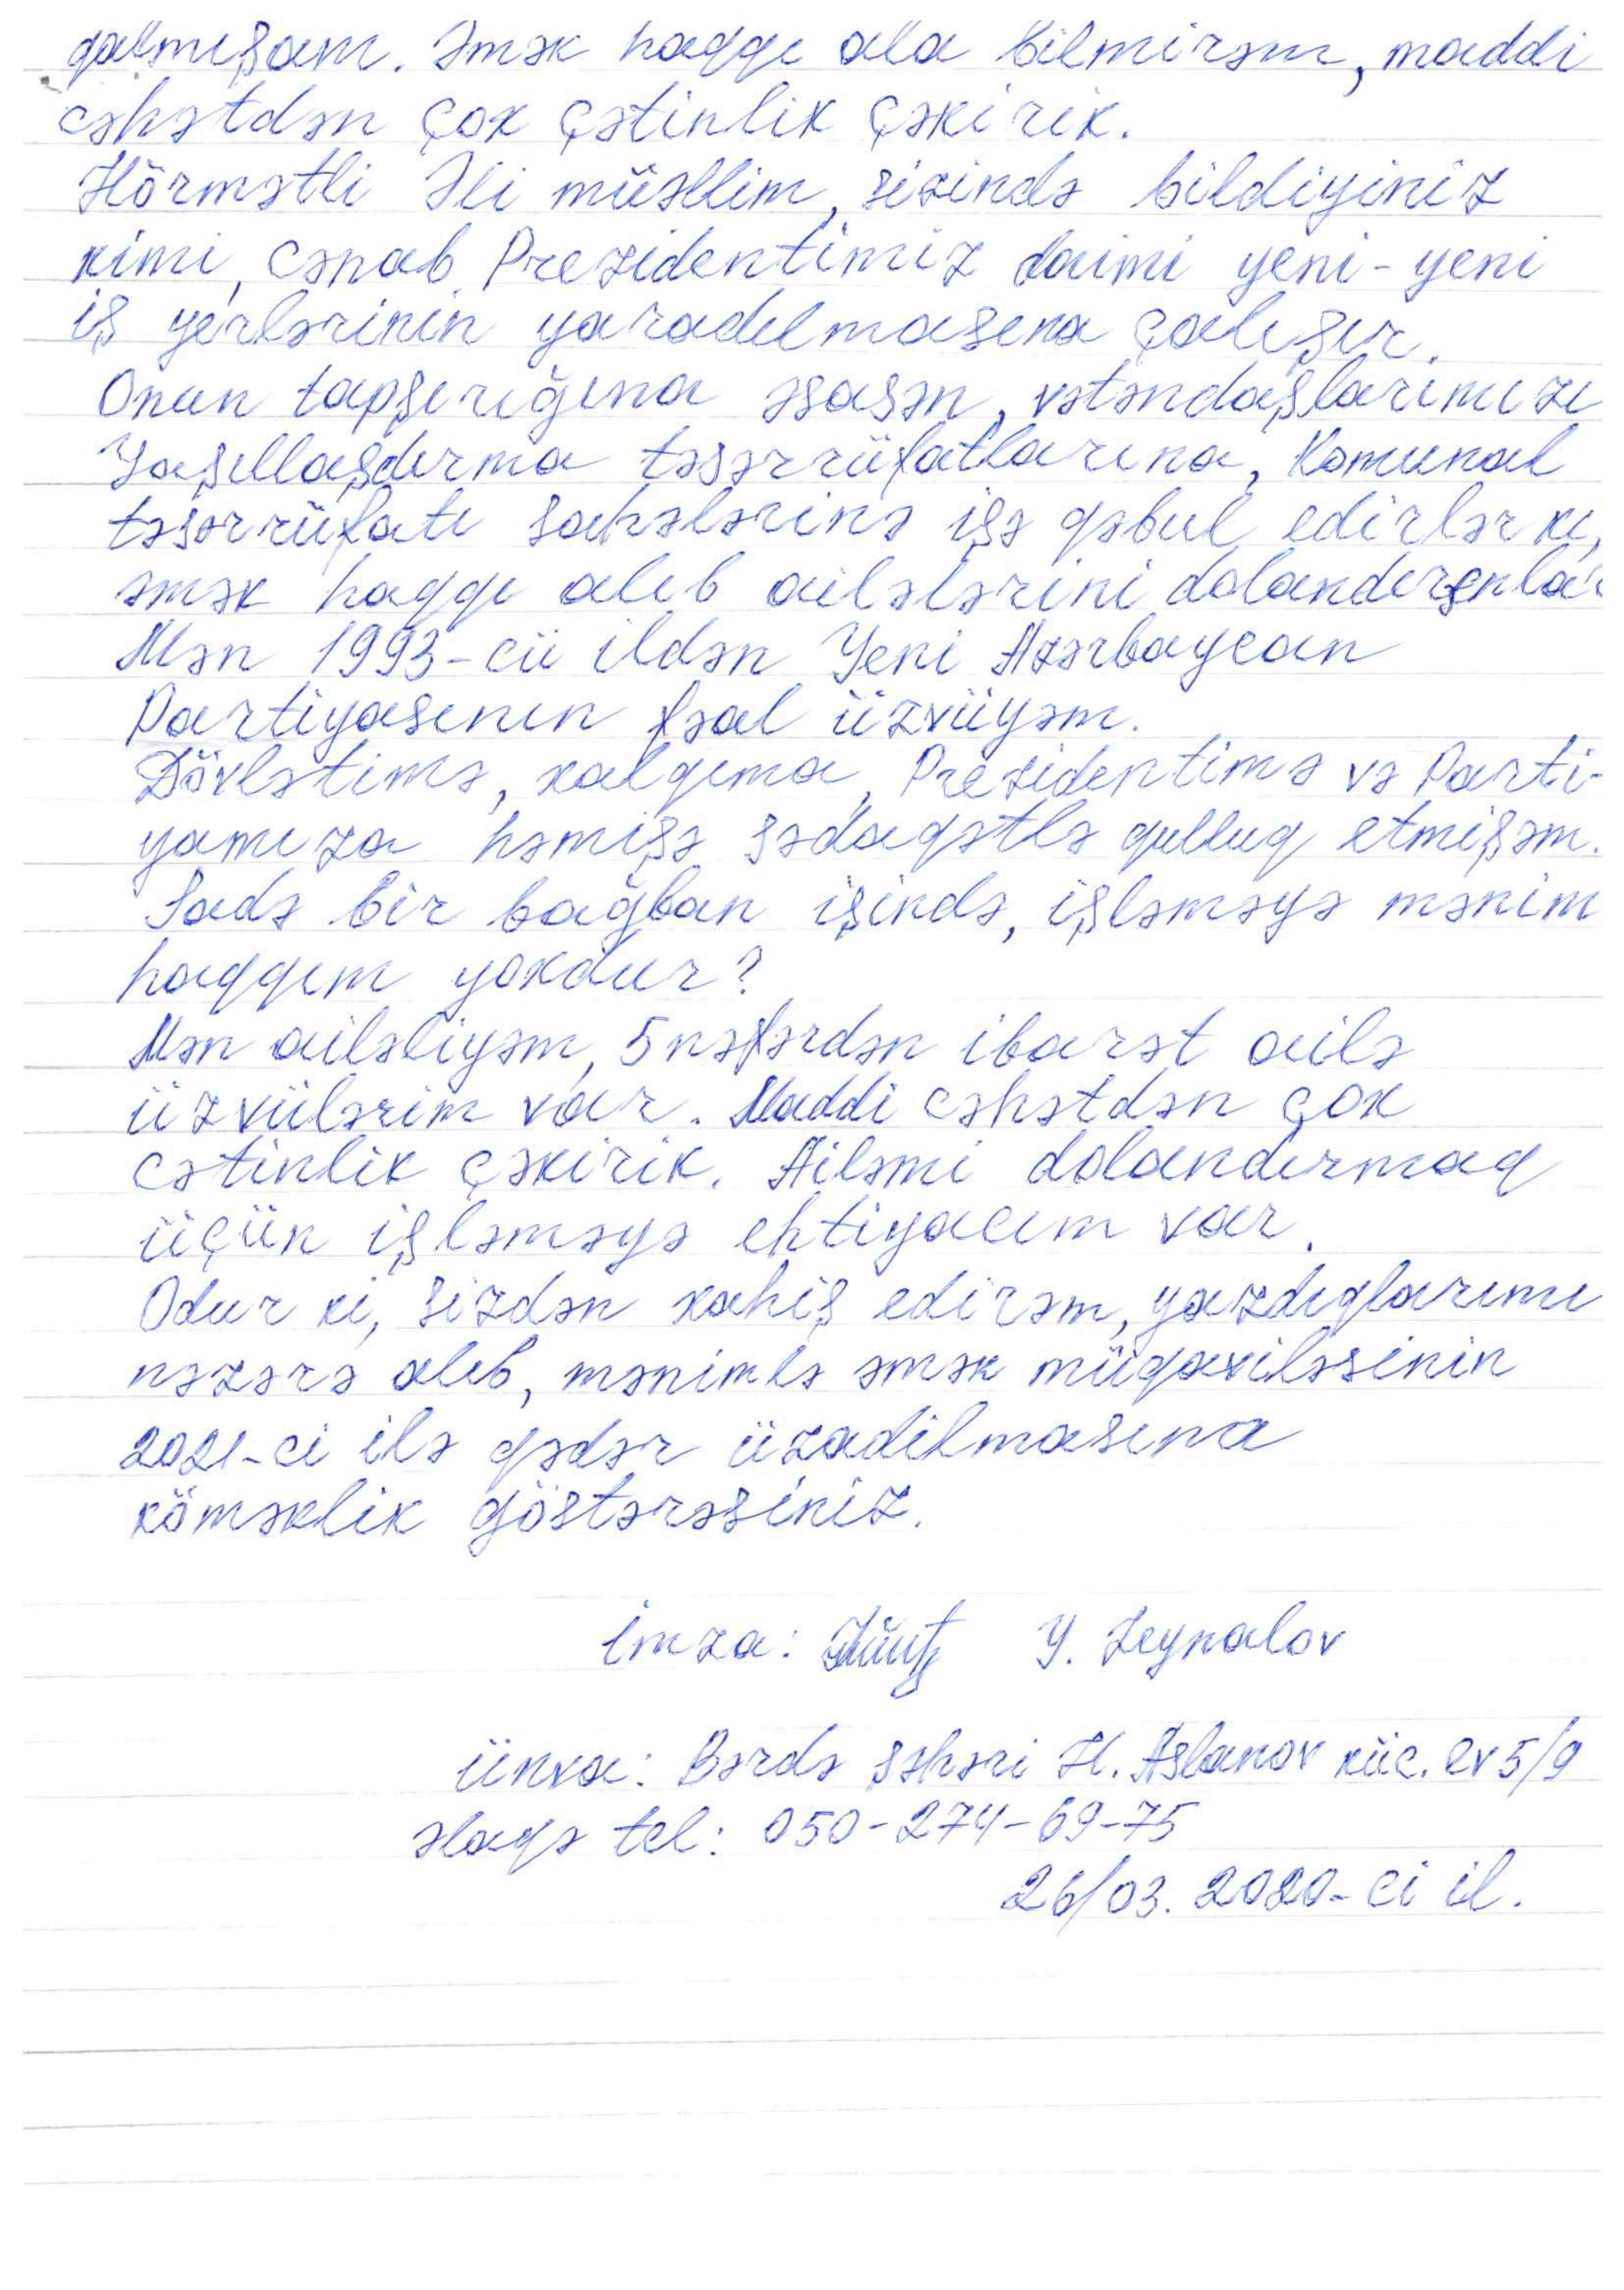 qalmışam. Əmək haqqı ala bilmirəm, maddi
cəhətdən çox çətinlik çəkirik.
Hörmətli Əli müəllim, sizində bildiyiniz
kimi, Cənab Prezidentimiz daimi yeni-yeni
iş yerlərinin yaradılmasına çalışır.
Onun tapşırığına əsasən, vətəndaşlarımızı
Yaşıllaşdırma təsərrüfatlarına, Komunal
təsərrüfatı sahələrinə işə qəbul edirlər ki,
əmək haqqı alıb ailələrini dolandırsınlar
Mən 1993-cü ildən Yeni Azərbaycan
Partiyasının fəal üzvüyəm.
Dövlətimə, xalqıma, Prezidentimə və Parti-
yamıza həmişə sədaqətlə qulluq etmişəm.
Sadə bir bağban işində, işləməyə mənim
haqqım yoxdur?
Mən ailəliyəm, 5 nəfərdən ibarət ailə
üzvülərim var. Maddi cəhətdən çox
cətinlik çəkirik. Ailəmi dolandırmaq
üçün işləməyə ehtiyacım var.
Odur ki, sizdən xahiş edirəm, yazdıqlarımı
nəzərə alıb, mənimlə əmək müqaviləsinin
2021-ci ilə qədər üzadilmasına
köməklik göstərəsiniz.
imza: Y. Zeynalov
ünva: Bərdə şəhəri H. Aslanov küc. ev 5/9
əlaqə tel: 050-274-69-75
26/03. 2020-ci il.